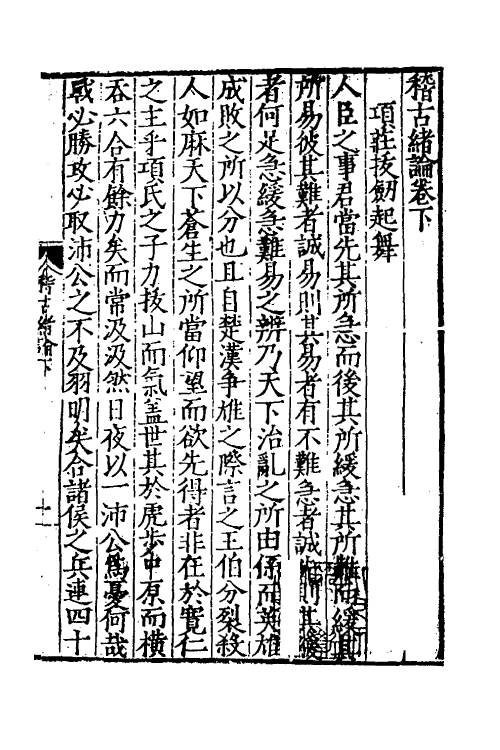 稽古緒論卷下
項莊拔劒起舞
人臣之事君當先其所急而後其所緩急其所難而緩其
所易彼其難者誠易則其易者有不難急者誠則其緩
者何足急緩急難易之辨乃天下治亂之所由係而英雄
成敗之所以分也且自楚漢爭雄之際言之王伯分裂殺
人如麻天下蒼生之所當仰望而欲先得者非在於寬仁
之主乎項氏之子力拔山而氣盖世其於虎步中原而橫
吞六合有餘力矣而常汲汲然日夜以一沛公爲憂何哉
戰必勝攻必取沛公之不及羽明矣合諸侯之兵連四十
稽古緒論下